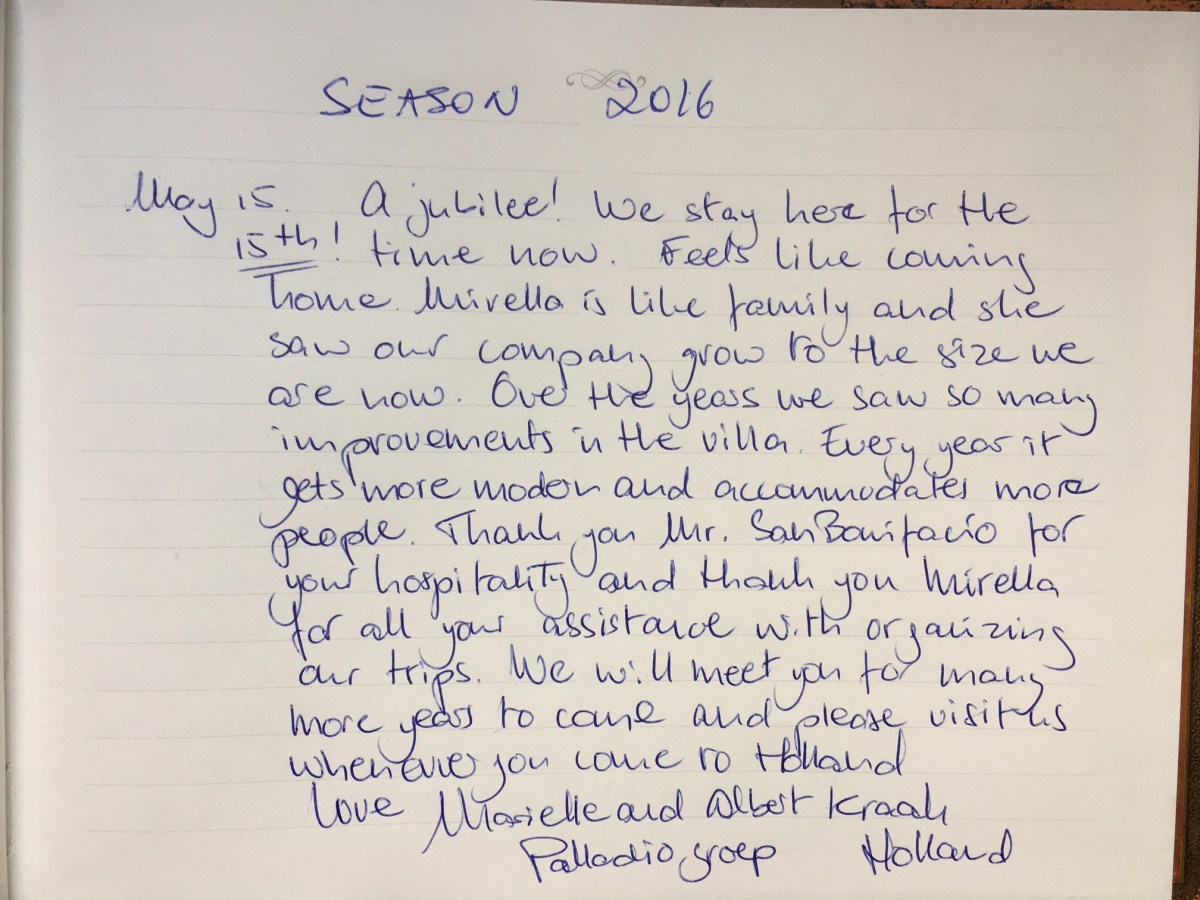 SEASON 2016
May 15. A jubilee! We stay here for the
15th! time now. Feels like coming
home. Mirella is like family and she
saw our company grow to the size we
are now. Over the years we saw so many
improvements in the villa. Every year it
gets more modern and accommodates more
people. Thank you Mr. SanBonifacio for
your hospitality and thank you Mirella
for all your assistance with organizing
our trips. We will meet you for many
more years to come and please visit us
whenever you come to Holland
Love Marielle and Albert Kraak
Palladio groep Holland